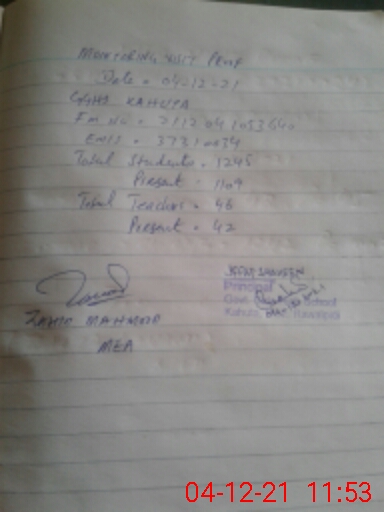 MONITORING VISIT PROF
Date = 04-12-21
GGHS KAHUTA
Em No =
EMIS = 37310034
Total Students = 1245
Present = 1109
Total Teachers = 46
Present = 42
ZAHID MAHMOOD
MEA
SHAHEEN
Principal
Govt. School
Kahuta Rawalpindi
04-12-21 11:53